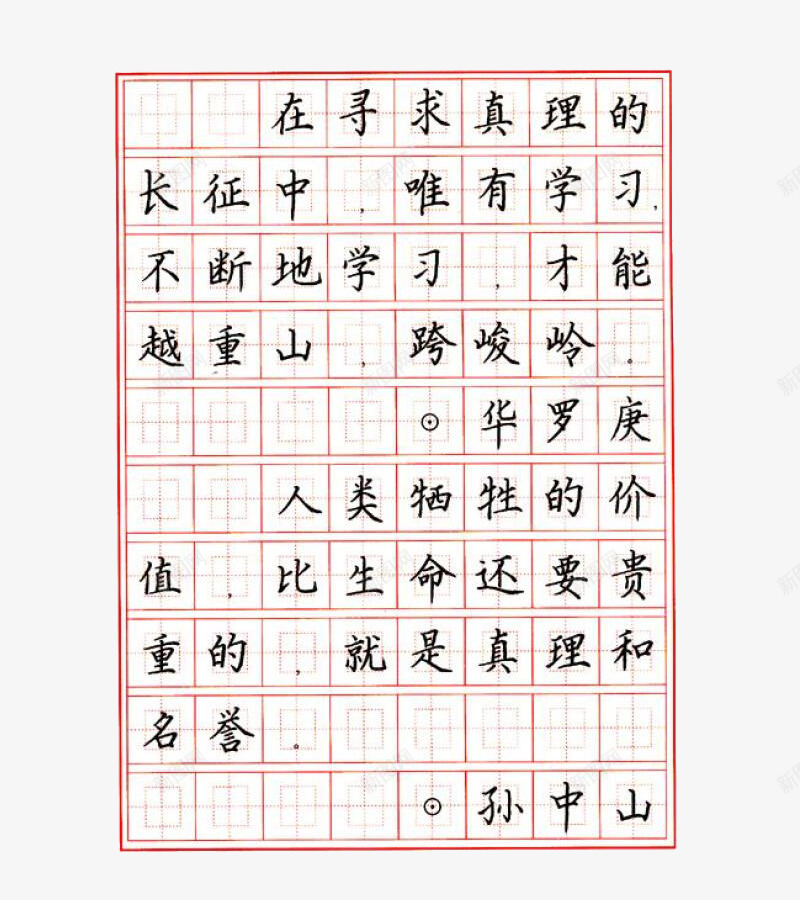 在寻求真理的
长征中，唯有学习，
不断地学习，才能
越重山，跨峻岭。
⊙华罗庚
人类牺牲的价
值，比生命还要贵
重的，就是真理和
名誉。
⊙孙中山